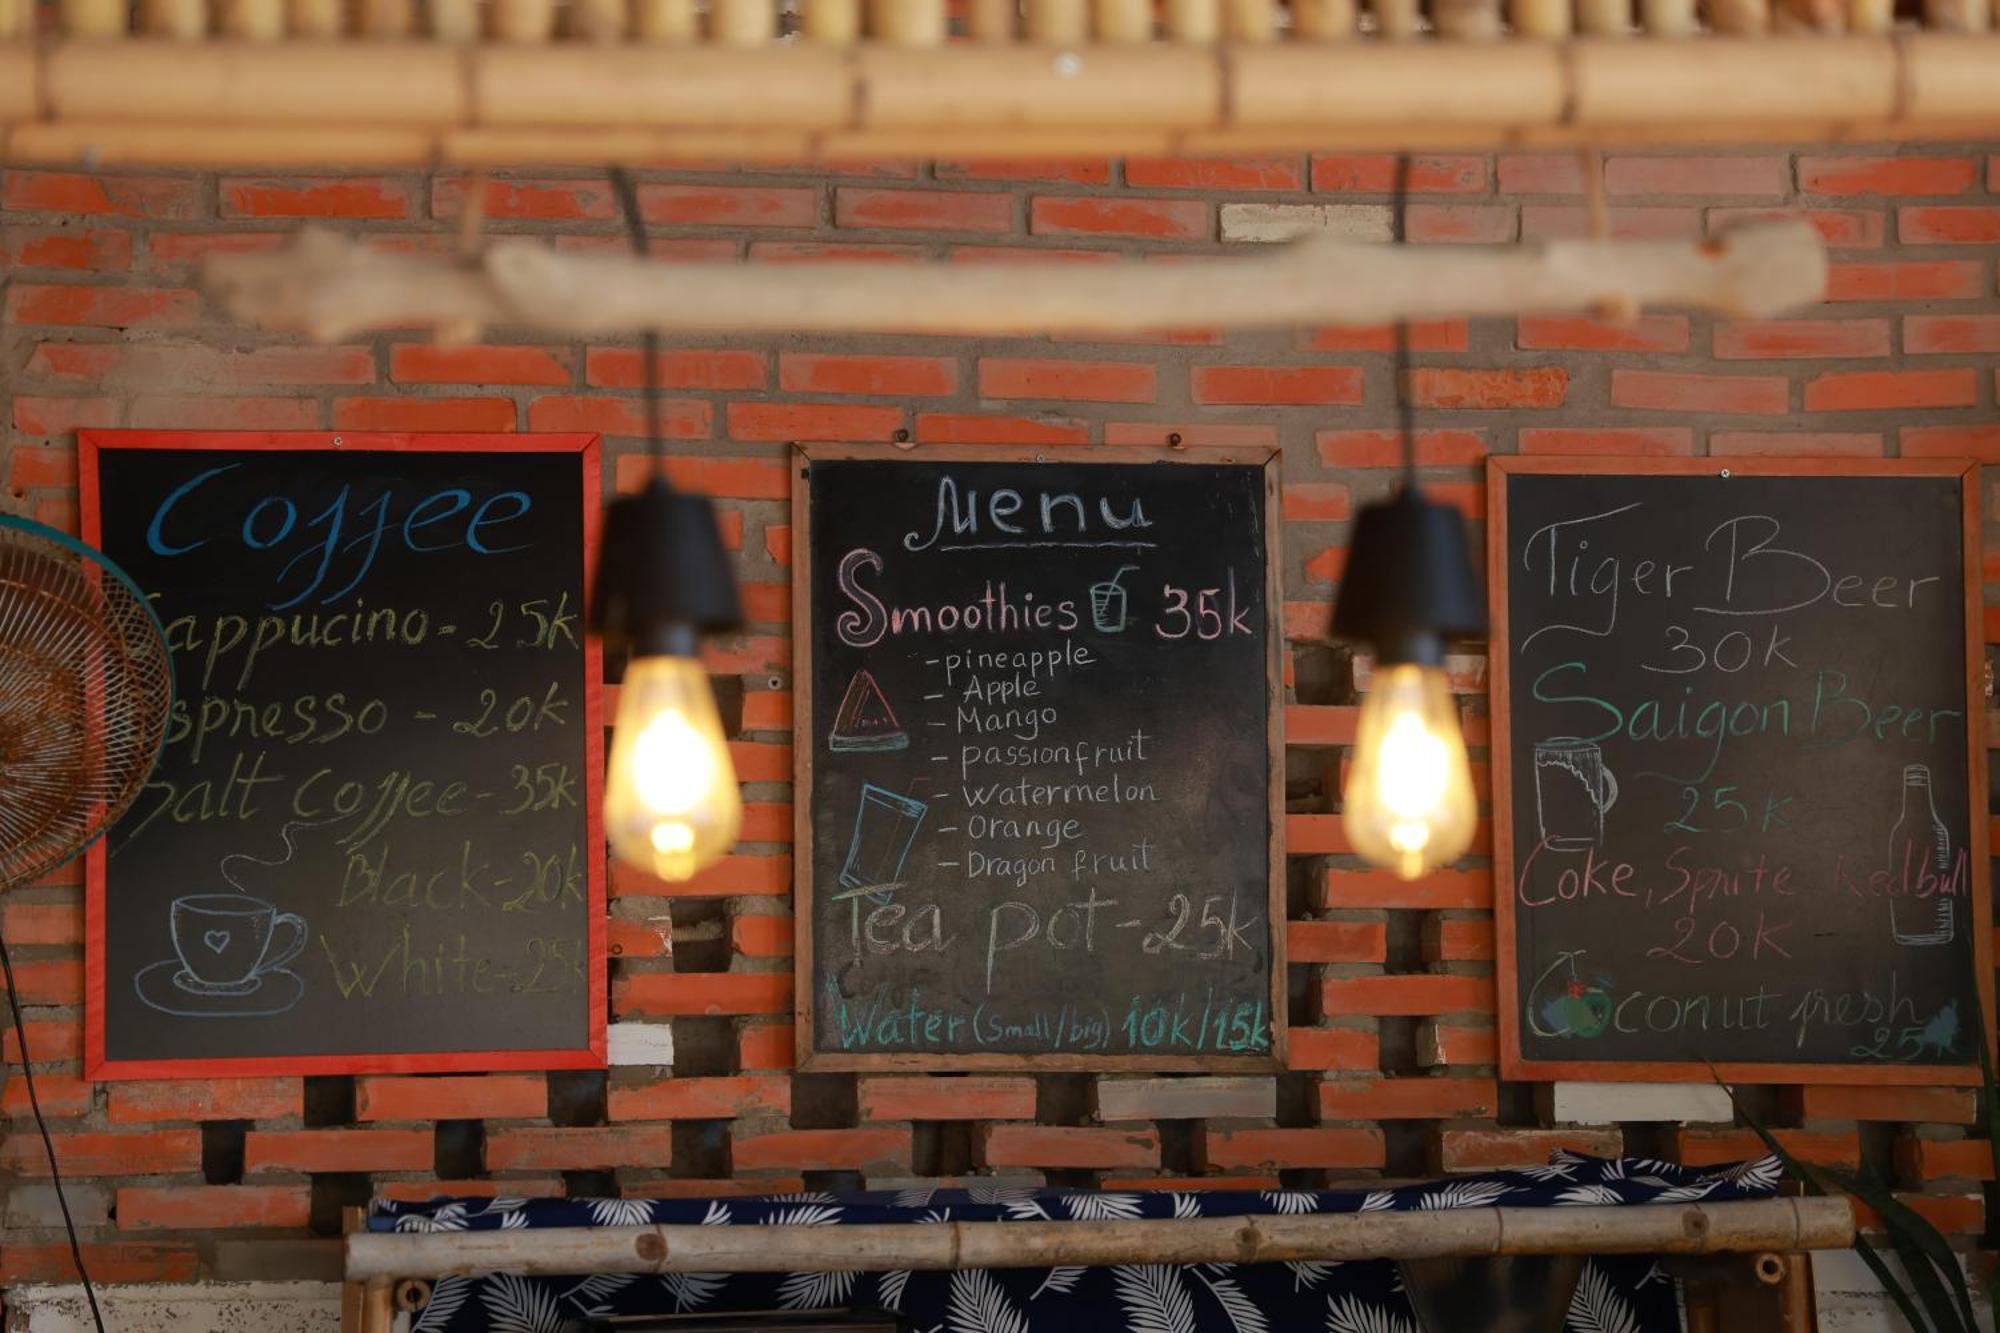 Coffee
Cappucino - 25k
Espresso - 20k
Salt Coffee - 35k
Black - 20k
White - 25k
Menu
Smoothies 35k
- pineapple
- Apple
- Mango
- passionfruit
- Watermelon
- Orange
- Dragon fruit
Tea pot - 25k
Water (small/big) 10k/15k
Tiger Beer
30k
Saigon Beer
25k
Coke, Sprite Redbull
20k
Coconut fresh
25